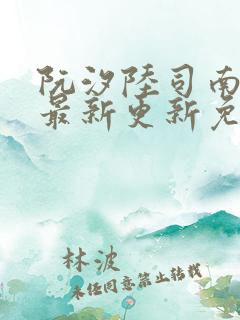 阮汐陸司南
最新更新免
林波
未经同意禁止转载